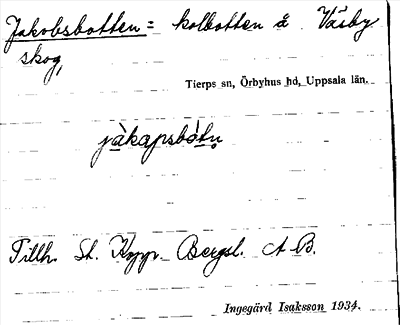 Jakobsbotten = kolbotten å Väsby
skog,
Tierps sn, Örbyhus hd, Uppsala län.
jàkapsbòtn̥
Tillh. St. Kopp. Bergsl. A.B.
Ingegärd Isaksson 1934.